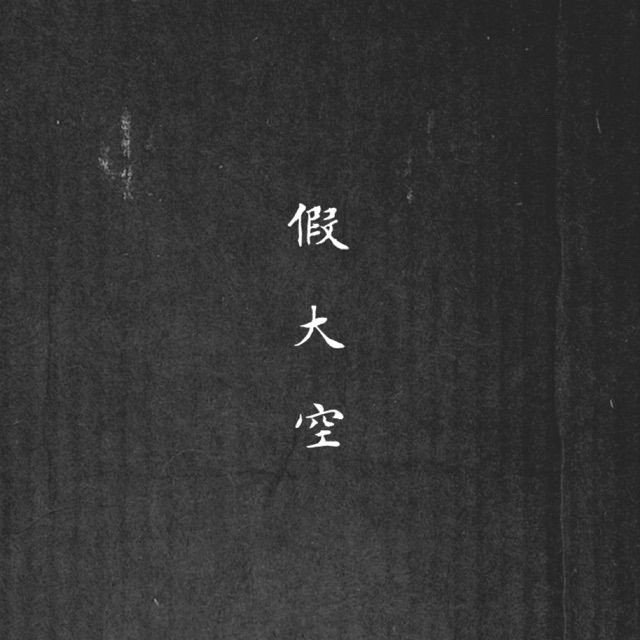 假大空